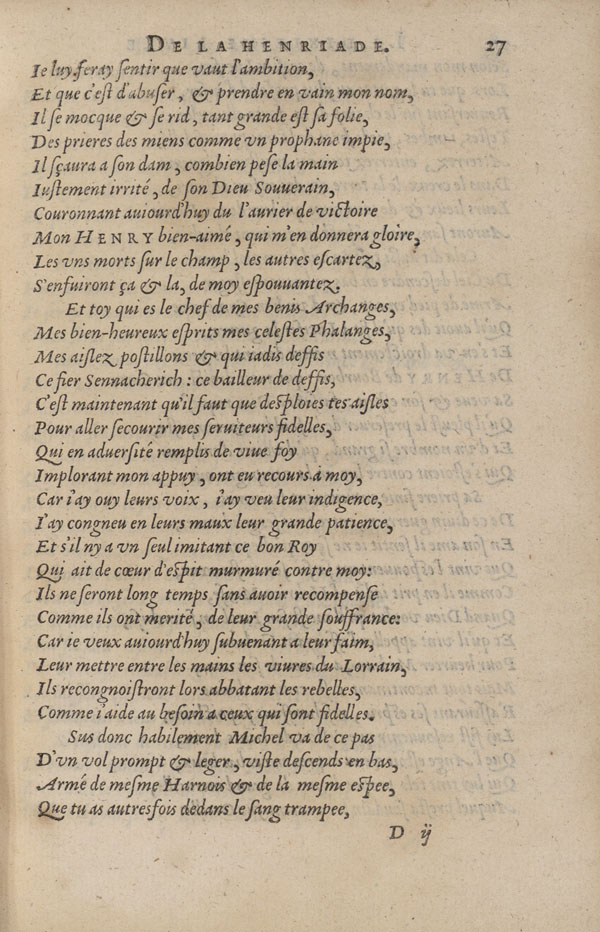 DE LA HENRIADE. 27
Ie luy feray ſentir que vaut l'ambition,
Et que c'eſt d'abuſer, & prendre en vain mon nom,
Il ſe mocque & ſe rid, tant grande eſt ſa folie,
Des prieres des miens comme vn prophane impie,
Il ſçaura a ſon dam, combien peſe la main
Iuſtement irrité, de ſon Dieu Souuerain,
Couronnant auiourd'huy du l'aurier de victoire
Mon HENRY bien-aimé, qui m'en donnera gloire,
Les vns morts ſur le champ, les autres eſcartez,
S'enfuiront ça & la, de moy eſpouuantez.
Et toy qui es le chef de mes benis Archanges,
Mes bien-heureux eſprits mes celeſtes Phalanges,
Mes aiſlez poſtillons & qui iadis deffis
Ce fier Sennacherich : ce bailleur de deffis,
C'eſt maintenant qu'il faut que deſploies tes aiſles
Pour aller ſecourir mes ſeruiteurs fidelles,
Qui en aduerſité remplis de viue foy
Implorant mon appuy, ont eu recours à moy,
Car i'ay ouy leurs voix, i'ay veu leur indigence,
I'ay congneu en leurs maux leur grande patience,
Et s'il ny a vn ſeul imitant ce bon Roy
Qui ait de cœur d'eſpit murmuré contre moy:
Ils ne ſeront long temps ſans auoir recompenſe
Comme ils ont merité, de leur grande ſouffrance:
Car ie veux auiourd'huy ſubuenant a leur faim,
Leur mettre entre les mains les viures du Lorrain,
Ils recongnoiſtront lors abbatant les rebelles,
Comme i'aide au beſoin a ceux qui ſont fidelles.
Sus donc habilement Michel va de ce pas
D'vn vol prompt & leger, viſte deſcends en bas,
Armé de meſme Harnois & de la meſme eſpee,
Que tu as autresfois dedans le ſang trampee,
D ij